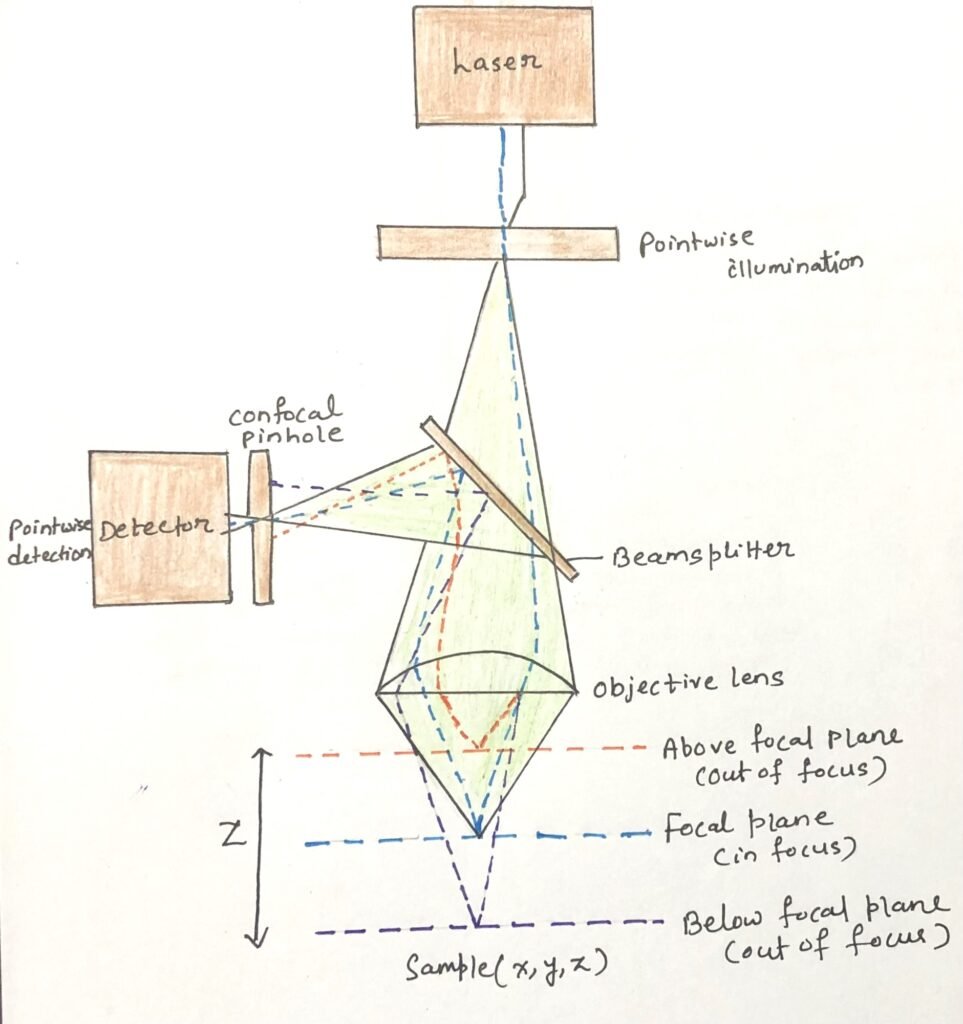 Laser
Pointwise
illumination
confocal
pinhole
Pointwise
detection
Detector
Beamsplitter
objective lens
Above focal plane
(out of focus)
Z
Focal plane
(in focus)
Below focal plane
(out of focus)
Sample(x,y,z)